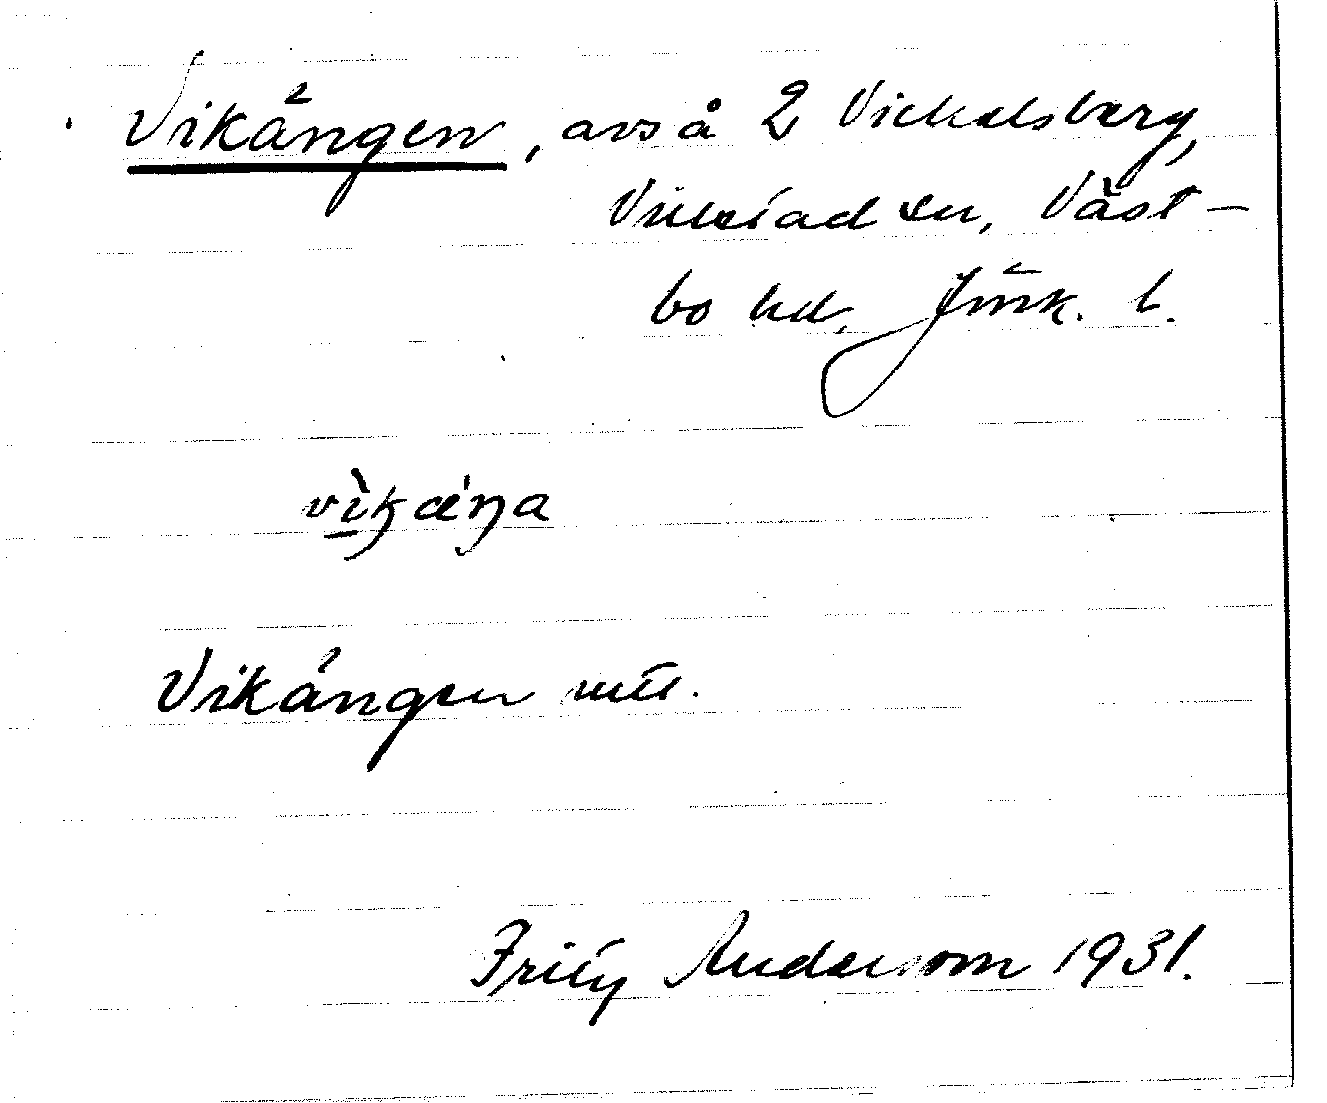 Vikängen, avs å 2 Vickelsberg,
Villstad sn, Väst-
bo hd, Jönk. l.
vìkæ̀ŋa
Vikängen
Fritz Anderson 1931.